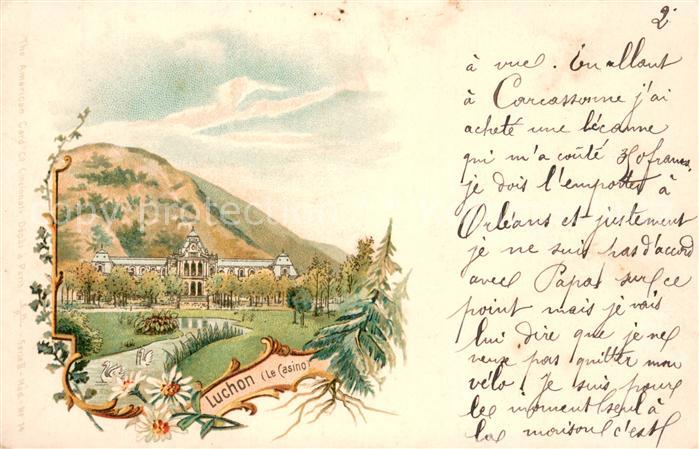 2
à vue. En allant
à Carcassonne j'ai
acheté une bécanne
qui m'a coûté francs,
je dois l'emporter à
Orléans et justement
je ne suis pas d'accord
avec Papa sur ce
point mais je vais
lui dire que je ne
veux pas quitter mon
vélo. Je suis pour
le moment seul à
la maison c'est
Luchon (Le Casino)
The American Card Co Cincinnati Dépôt à Paris
copy protection